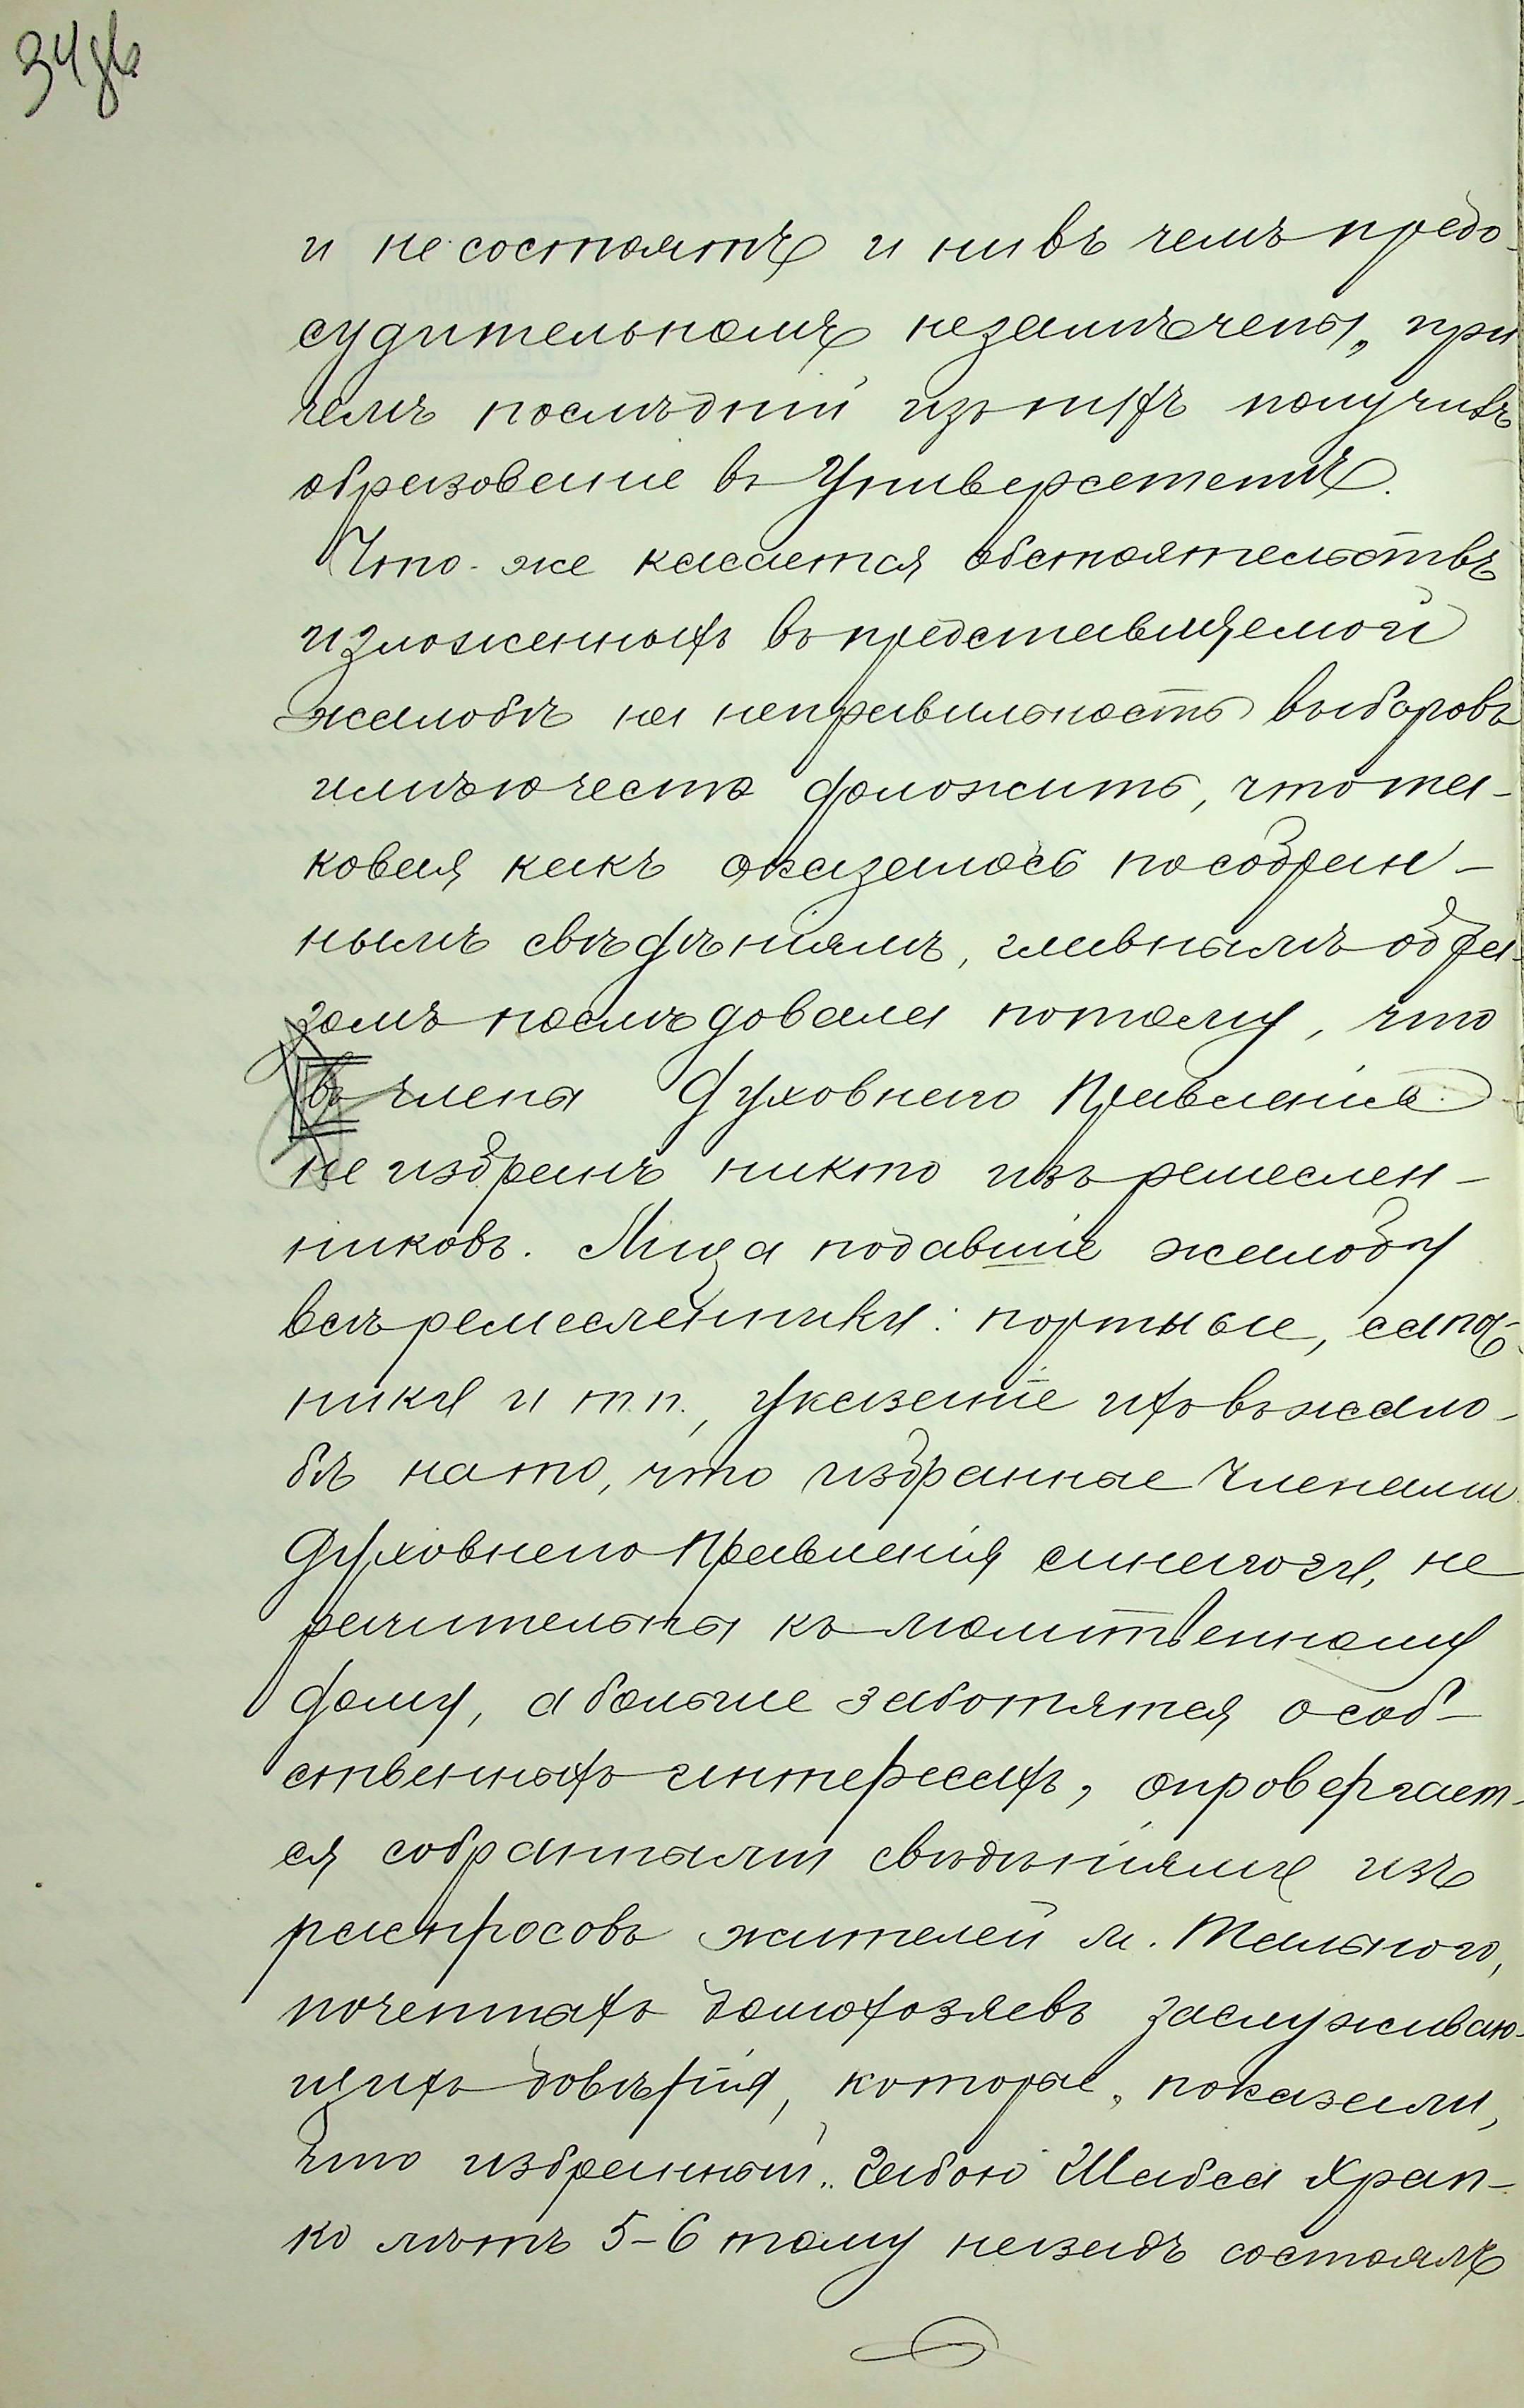 34 об
и не состоятъ и ни въ чемъ предо-
судительномъ незамѣчены, при
чемъ послѣдній изъ нихъ получилъ
образование въ Университетѣ.
Что-же касается обстоятельствъ
изложенныхъ въ представляемой
жалобѣ на неправильность выборовъ
имѣю честь доложить, что та-
ковая какъ оказалось по собран-
нымъ свѣдѣніямъ, главнымъ обра-
зомъ послѣдовала потому, что
въ члены Духовнаго Правленія
не избранъ никто изъ ремеслен-
никовъ. Лица подавшіе жалобу
всѣ ремесленники: портные, сапож-
ники и т.п., указаніе ихъ въ жало-
бѣ на то, что избранные членами
Духовнаго Правленія синагоги, не
рачительны къ молитвенному
дому, а больше заботятся о соб-
ственныхъ интересахъ, опровергает-
ся собранными свѣдѣніями изъ
распросовъ жителей м. Тального,
почетныхъ домохозяевъ заслуживаю-
щихъ довѣрія, которые, показали,
что избранный Габою Шабса Храп-
ко лѣтъ 5-6 тому назадъ состоялъ